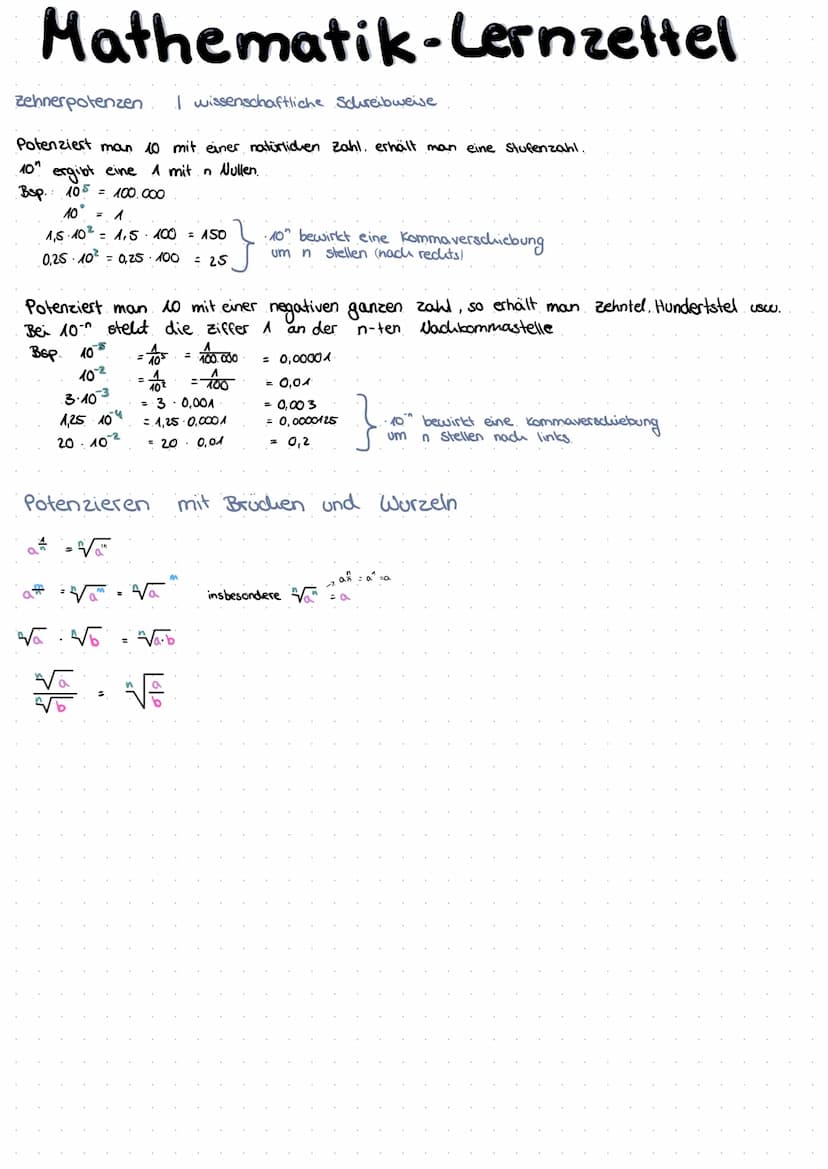 Mathematik-Lernzettel
Zehnerpotenzen | wissenschaftliche Schreibweise
Potenziert man 10 mit einer natürlichen Zahl, erhält man eine Stufenzahl.
10ⁿ ergibt eine 1 mit n Nullen.
Bsp.: 10⁵ = 100.000
10⁰ = 1
1,5 · 10² = 1,5 · 100 = 150
0,25 · 10² = 0,25 · 100 = 25
· 10ⁿ bewirkt eine Kommaverschiebung
um n Stellen (nach rechts)
Potenziert man 10 mit einer negativen ganzen Zahl, so erhält man Zehntel, Hundertstel usw.
Bei 10⁻ⁿ steht die Ziffer 1 an der n-ten Nachkommastelle
Bsp. 10⁻⁵ = 1/10⁵ = 1/100.000 = 0,00001
10⁻² = 1/10² = 1/100 = 0,01
3 · 10⁻³ = 3 · 0,001 = 0,003
1,25 · 10⁻⁴ = 1,25 · 0,0001 = 0,0000125
20 · 10⁻² = 20 · 0,01 = 0,2
· 10⁻ⁿ bewirkt eine Kommaverschiebung
um n Stellen nach links
Potenzieren mit Brüchen und Wurzeln
a^(1/n) = ⁿ√aᵐ
a^(m/n) = ⁿ√aᵐ = ⁿ√a ᵐ insbesondere ⁿ√aⁿ = a → a^(n/n) = a¹ = a
ⁿ√a · ⁿ√b = ⁿ√a·b
ⁿ√a / ⁿ√b = ⁿ√(a/b)